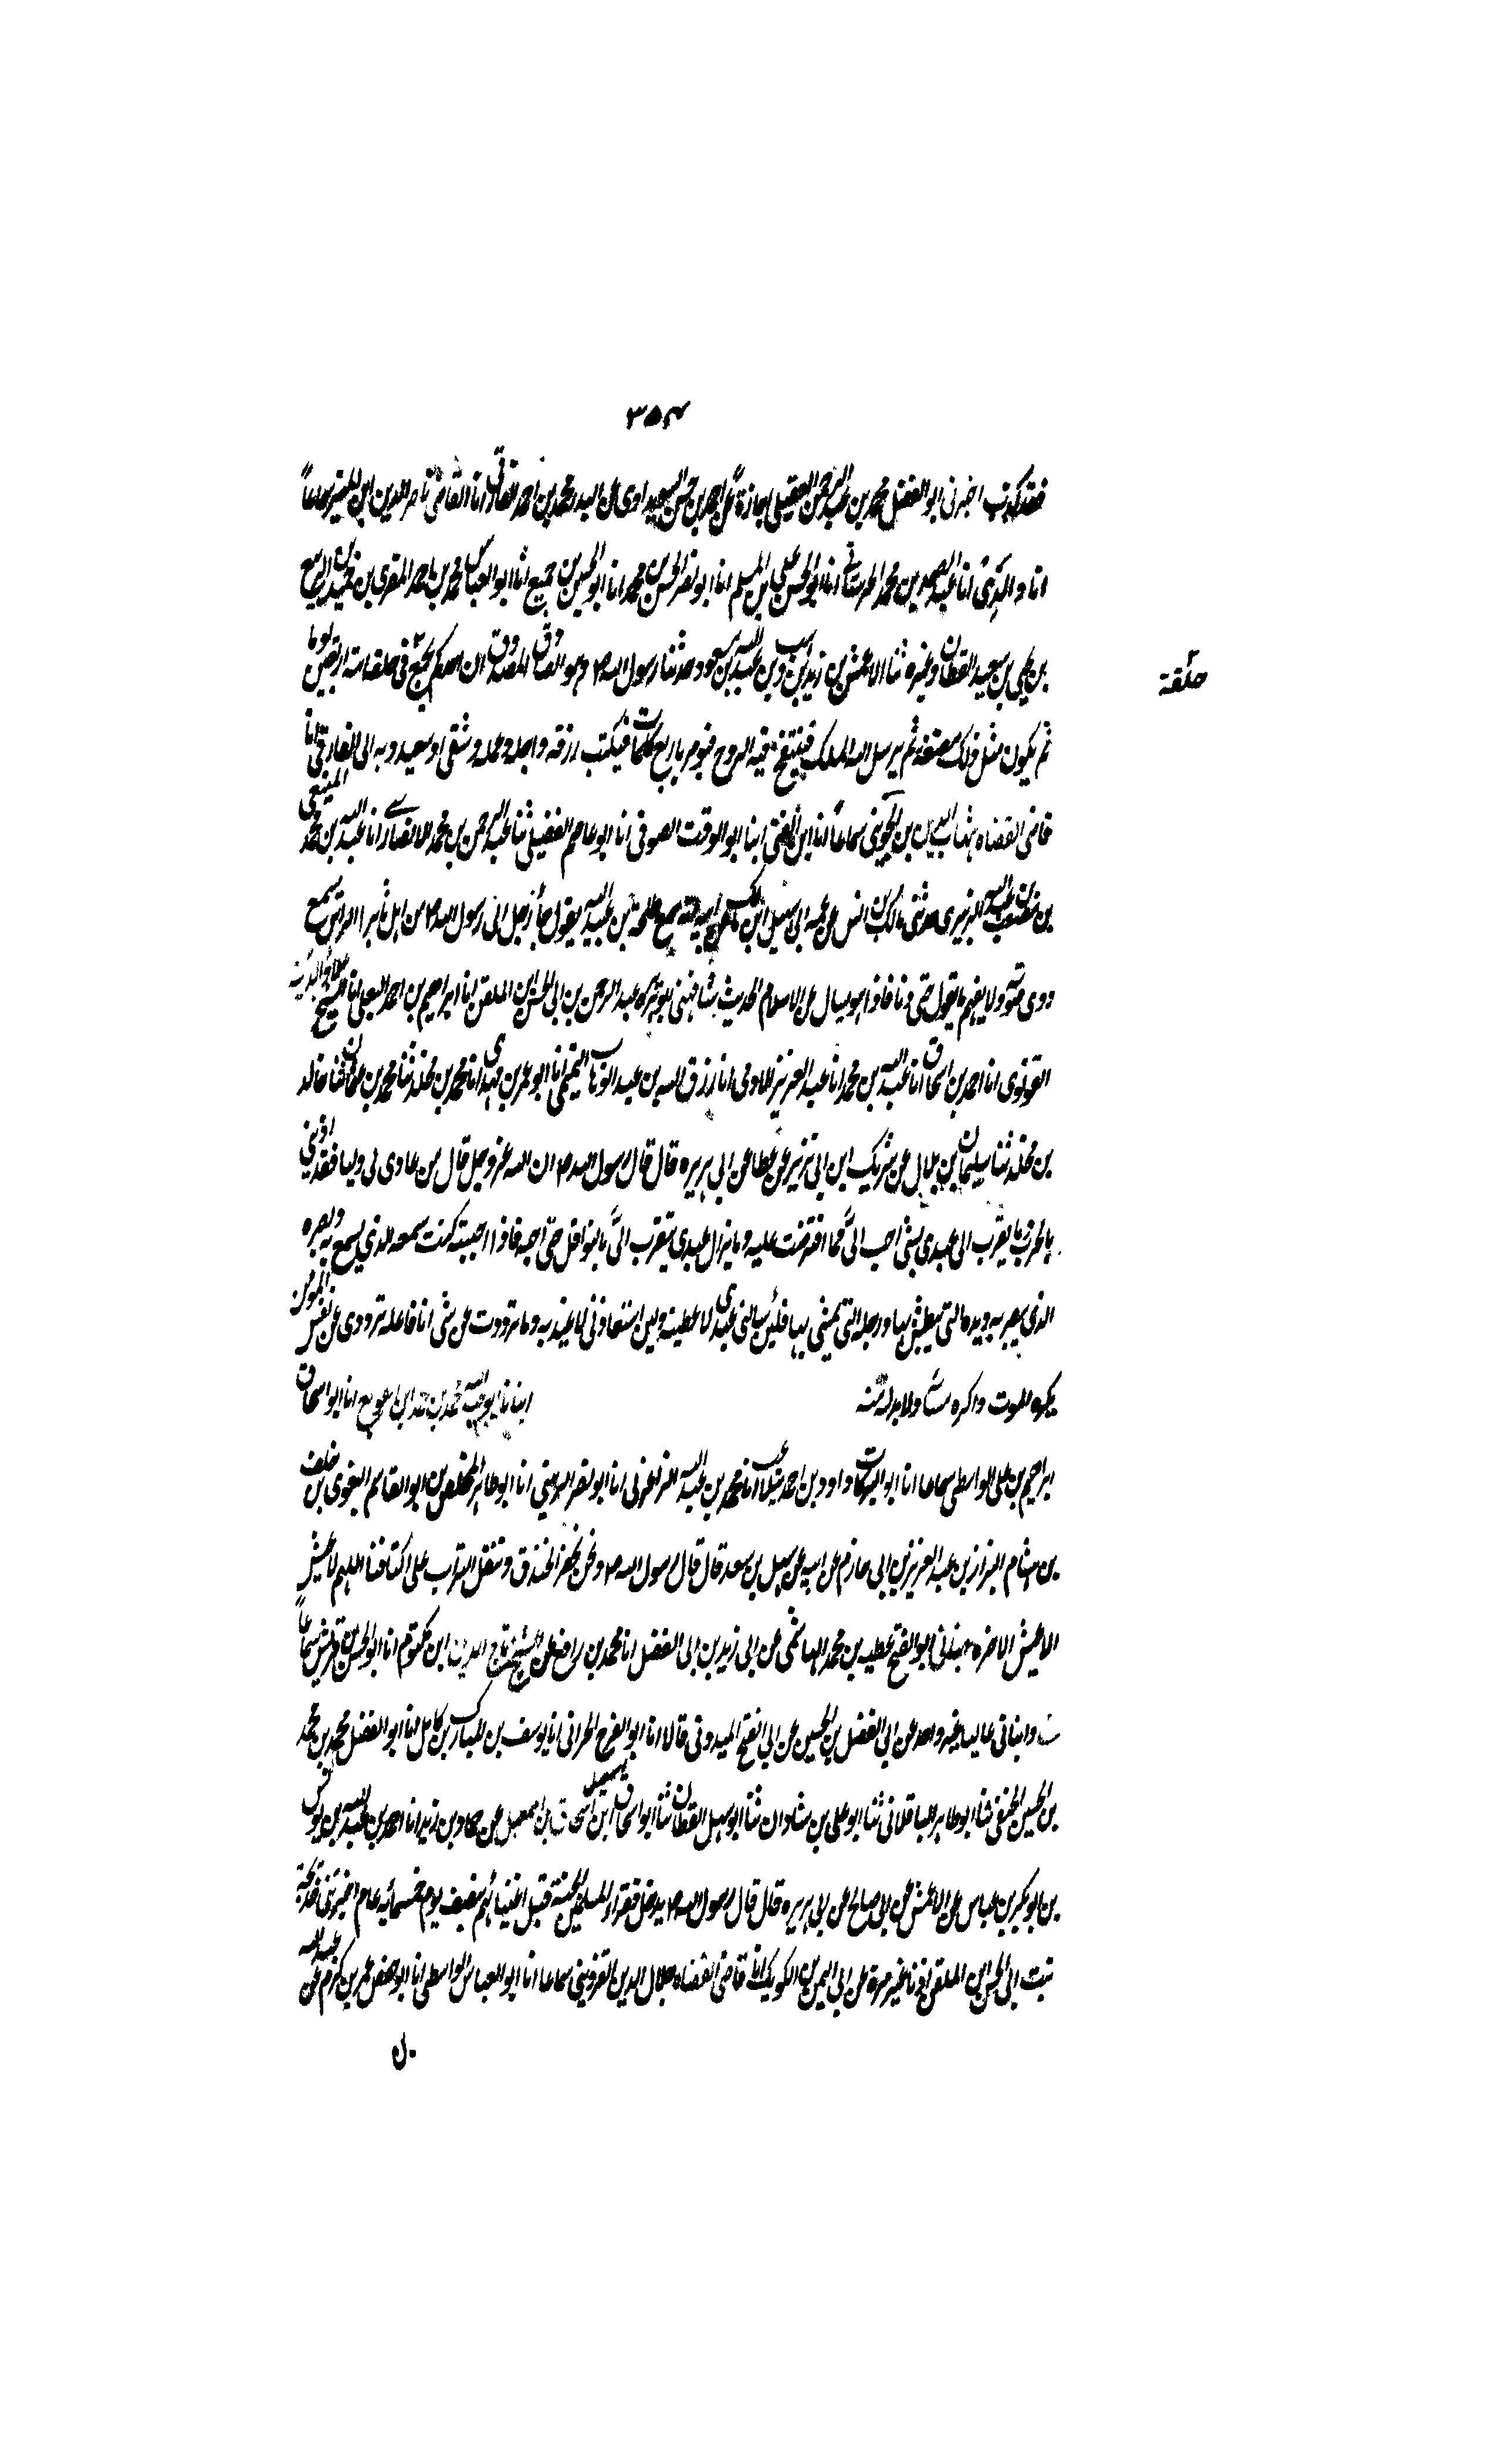 ٣٥٤
فقد كذب اخبرني ابو الفضل محمد بن عبد الرحمن العقيلي اجازة عن احمد بن حسن السويداوي عن البدر محمد بن احمد الفارقي انا القاضي ناصر الدين ابن سماعا
انا والدي انا عبد الصمد بن محمد الحرستاني انا ابو الحسن علي بن المسلم انا ابو نصر الحسن بن محمد انا ابو الحسين بن جميع انا ابو العباس محمد بن احمد المقري بن
بن يحيى بن سعيد القطان وغيره ثنا الاعمش بن زيد بن وهب بن عبد الله بن مسعود حدثنا رسول الله ص وهو الصادق المصدوق ان احدكم يجمع في خلقه امه اربعين يوما
حلقة
ثم يكون مثل ذلك مضغة ثم يرسل الله الملك فينفخ فيه الروح فيومر باربع كلمات فيكتب رزقه واجله وعمله وشقي او سعيد وبه الى الفارقي انا
قاضي القضاه شهاب الدين بن الخويي سماعا انا ابن المغني انبا ابو الوقت الصوفي انا ابو عاصم الفضيلي ثنا عبد الرحمن بن محمد الانصاري انا عبد الله بن محمد المنيعي
بن مصعب عبد الله الزبيري حدثني مالك بن انس عن عمه ابي سهيل ابن مالك عن ابيه انه سمع طلحة بن عبيد الله يقول جا رجل الى رسول الله ص من اهل نجد ثائر الراس يسمع
دوي صوته ولا يفهم ما يقول حتى دنا فاذا هو يسال عن الاسلام الحديث شافهني عبد الرحمن بن ابي الحسن ابن الملقن انا ابراهيم بن احمد البعلي انا الشيخ علاء الدين
القونوي انا احمد بن اسحاق انا عبد الله بن محمد انا عبد العزيز الادمي انا رزق الله بن عبد الوهاب التميمي انا ابو عمر بن مهدي انا محمد بن مخلد ثنا محمد بن عثمان ثنا خالد
بن مخلد ثنا سليمان بن بلال عن شريك ابن ابي نمير عن عطا عن ابي هريره قال قال رسول الله ص ان الله عز وجل قال من عادى لي وليا فقد اذنني
بالحرب ما يقرب الى عبدي بشي احب الي مما افترضت عليه وما يزال عبدي يتقرب الي بالنوافل حتى احبه فاذا احببته كنت سمعه الذي يسمع به وبصره
الذي يبصر به ويده التي يبطش بها ورجله التي يمشي بها فلئن سالني عبدي لاعطينه ولين استعاذني لاعيذنه وما ترددت عن شي انا فاعله ترددي عن نفس المومن
يكره الموت واكره مساته ولا بد له منه انبانا ابو عبد الله محمد بن انا ابو اسحاق
ابراهيم بن علي الواسطي سماعا انا ابو البركات داود بن احمد انا محمد بن عبد الله انا ابو نصر الزينبي انا ابو طاهر المخلص بن ابو القاسم البغوي بن خلف
بن هشام البزار بن عبد العزيز بن ابي حازم عن ابيه عن سهل بن سعد قال قال رسول الله ص ونحن نحفر الخندق وننقل التراب على اكتافنا اللهم لا عيش
الا عيش الاخره ابو الفتح عطيه بن محمد الهاشمي عن ابي زيد بن ابي الفضل انا محمد بن رافع عن الشيخ تاج الدين ابن مكتوم انا ابو الحسن بن قريش سماعا
وانباني عاليا غير واحد عن ابي الفضل بن الحسين عن ابي الفتح الميدومي قالا انا ابو الفرج الحراني انا يوسف بن المبارك بن كامل انا ابو الفضل محمد بن محمد
بن الحسين الحنفي ثنا ابو طاهر الباقلاني ثنا ابو علي بن شاذان ثنا ابو سهل القطان ثنا ابو اسحاق ابن اسحاق بن اسمعيل عن حماد بن زيد انا احمد بن عبد الله بن يونس
بن ابو بكر بن عياش عن الاعمش عن ابي صالح عن ابي هريره قال قال رسول الله ص يدخل فقراء المسلمين الجنة قبل اغنيائهم بنصف يوم خمسمائه عام اخبرتني خديجة
بنت ابي الحسن ابن الملقن اذنا غير مرة عن ابي اليمن بن الكويك انا قاضي القضاه جلال الدين القزويني سماعا انا ابو العباس الواسطي انا ابو حفص عمر بن كرم عن عبد الله